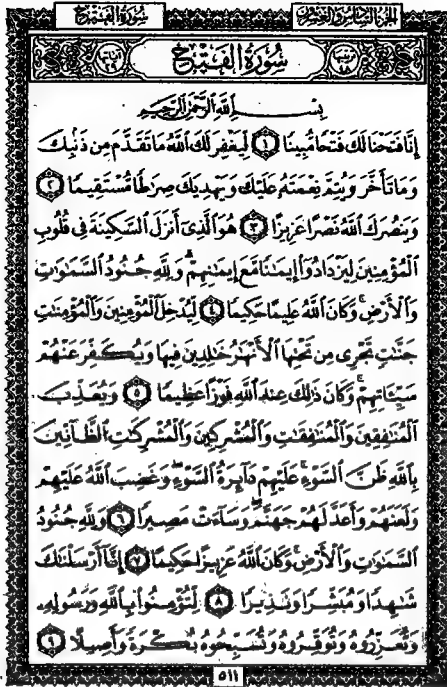 سُورَةُ الفَتْحِ
الجزء السادس والعشرون
سُورَةُ الفَتْحِ
بِسْمِ اللَّهِ الرَّحْمَٰنِ الرَّحِيمِ
إِنَّا فَتَحْنَا لَكَ فَتْحًا مُّبِينًا ١ لِّيَغْفِرَ لَكَ اللَّهُ مَا تَقَدَّمَ مِن ذَنۢبِكَ
وَمَا تَأَخَّرَ وَيُتِمَّ نِعْمَتَهُۥ عَلَيْكَ وَيَهْدِيَكَ صِرَٰطًا مُّسْتَقِيمًا ٢
وَيَنصُرَكَ اللَّهُ نَصْرًا عَزِيزًا ٣ هُوَ الَّذِىٓ أَنزَلَ السَّكِينَةَ فِى قُلُوبِ
الْمُؤْمِنِينَ لِيَزْدَادُوٓا إِيمَٰنًا مَّعَ إِيمَٰنِهِمْ ۗ وَلِلَّهِ جُنُودُ السَّمَٰوَٰتِ
وَالْأَرْضِ ۚ وَكَانَ اللَّهُ عَلِيمًا حَكِيمًا ٤ لِّيُدْخِلَ الْمُؤْمِنِينَ وَالْمُؤْمِنَٰتِ
جَنَّٰتٍ تَجْرِى مِن تَحْتِهَا الْأَنْهَٰرُ خَٰلِدِينَ فِيهَا وَيُكَفِّرَ عَنْهُمْ
سَيِّـَٔاتِهِمْ ۚ وَكَانَ ذَٰلِكَ عِندَ اللَّهِ فَوْزًا عَظِيمًا ٥ وَيُعَذِّبَ
الْمُنَٰفِقِينَ وَالْمُنَٰفِقَٰتِ وَالْمُشْرِكِينَ وَالْمُشْرِكَٰتِ الظَّآنِّينَ
بِاللَّهِ ظَنَّ السَّوْءِ ۚ عَلَيْهِمْ دَآئِرَةُ السَّوْءِ ۖ وَغَضِبَ اللَّهُ عَلَيْهِمْ
وَلَعَنَهُمْ وَأَعَدَّ لَهُمْ جَهَنَّمَ ۖ وَسَآءَتْ مَصِيرًا ٦ وَلِلَّهِ جُنُودُ
السَّمَٰوَٰتِ وَالْأَرْضِ ۚ وَكَانَ اللَّهُ عَزِيزًا حَكِيمًا ٧ إِنَّآ أَرْسَلْنَٰكَ
شَٰهِدًا وَمُبَشِّرًا وَنَذِيرًا ٨ لِّتُؤْمِنُوا بِاللَّهِ وَرَسُولِهِۦ
وَتُعَزِّرُوهُ وَتُوَقِّرُوهُ وَتُسَبِّحُوهُ بُكْرَةً وَأَصِيلًا ٩
٥١١